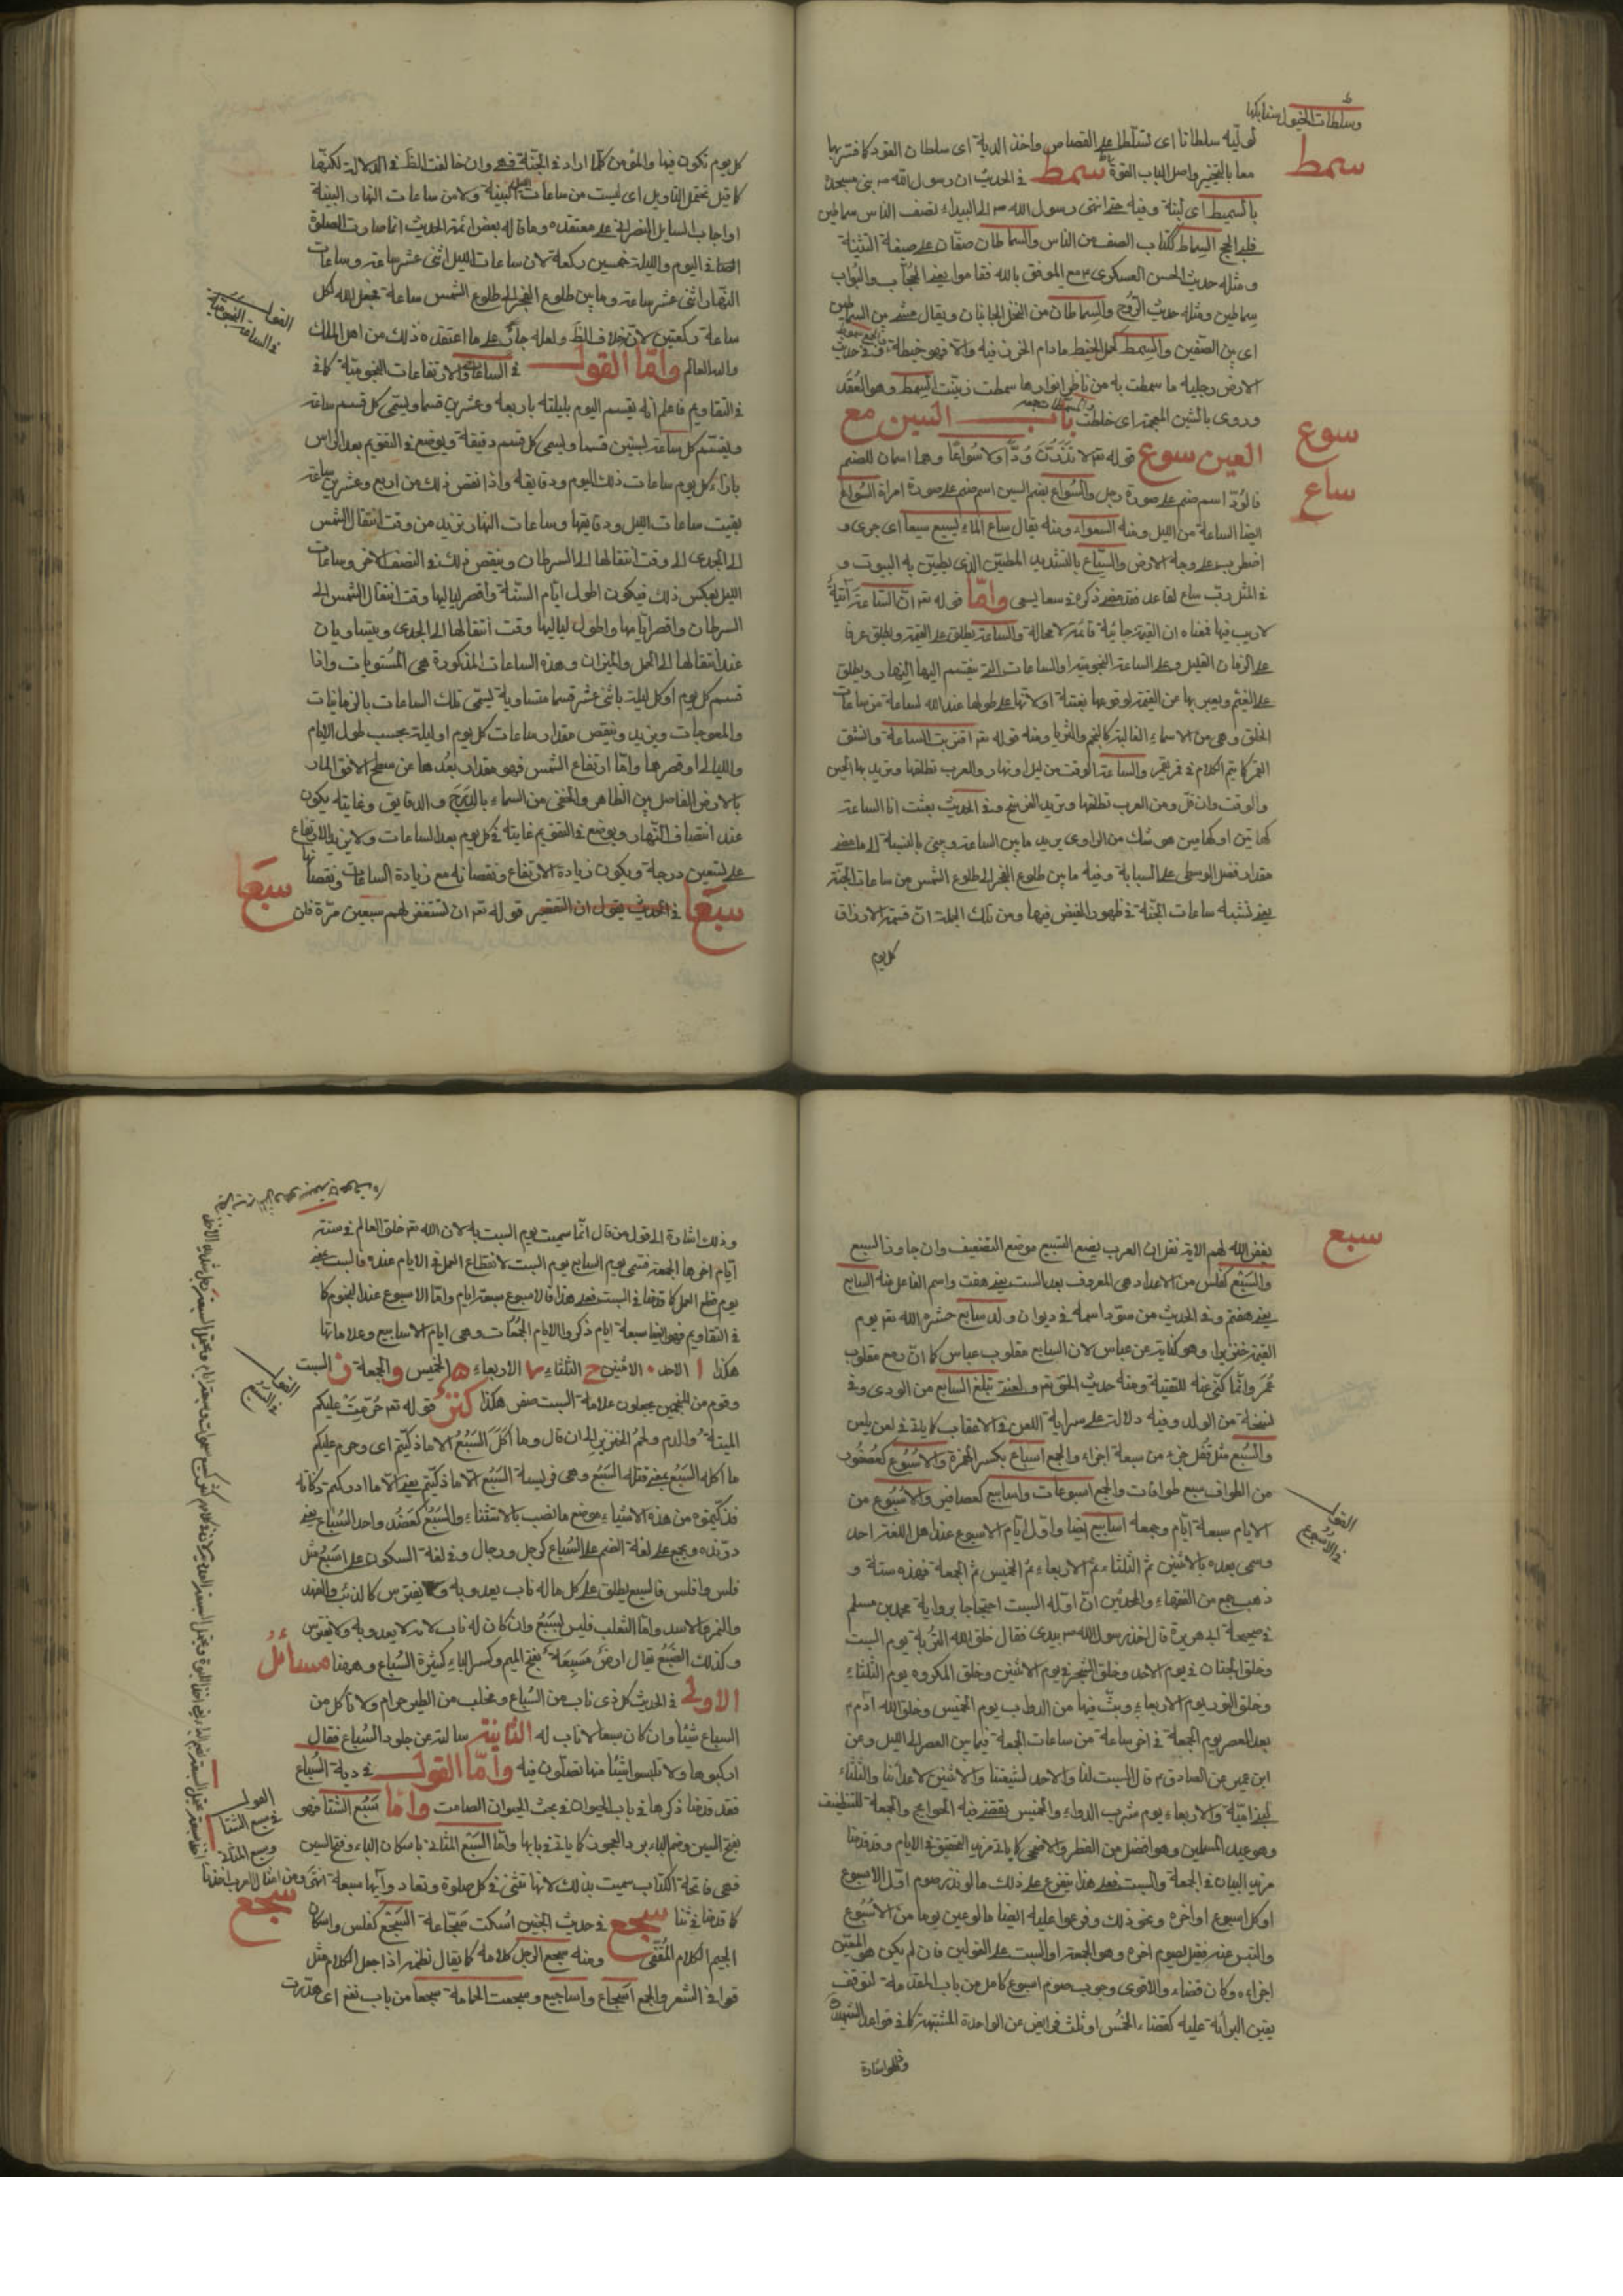 وسلطات الخيول سنابكها
لوليه سلطانا اى تسلطا على القصاص واخذ الدية اى سلطان القود كما فسرتها
سمط
معا بالتخيير واصل الباب القوة سمط فى الحديث ان رسول الله ص بنى مسجده
بالسميط اى لبنة وفيه حتى انتهى رسول الله ص الى البيداء نصف الناس سماطين
السماط ككتاب الصف من الناس والسماطان صفان على صيغة التثنية
ومثله حديث الحسن العسكرى ع مع الموفق بالله فقاموا يعنى الحجاب والبواب
سماطين ومثله حديث الزوج والسماطان من النخل الجانبان ويقال مشى بين السماطين
اى بين الصفين والسمط كحمل الخيط مادام الخرز فيه والا فهو خيطة
الارض وحليه ما سمطت به من ناظر انوارها سمطت زينت بالسمط وهو العقد
وروى بالشين المعجمة اى خلطت باب السين مع
سوع
العين سوع قوله تعـ لا تذرن ودا ولا سواعا وهما اسمان للصنم
ساع
فالود اسم صنم على صورة رجل والسواع بضم السين اسم صنم على صورة امراة السواع
ايضا الساعة من الليل ومنه السعواء ومنه يقال ساع الماء يسيع سيعا اى جرى و
اضطرب على وجه الارض والسياع بالتشديد الطين الذى يطين به البيوت و
فى المثل رب ساع لقاعد فقد مضى ذكره فى سعا يسعى واما قوله تعـ ان الساعة آتية
لاريب فيها فمعناه ان القيمة جائية قائمة لا محالة والساعة يطلق على القيمة ويطلق عرفا
على الزمان القليل وعلى الساعة النجومية والساعات التى ينقسم اليها النهار ويطلق
على القيم ويعبر بها عن القيمة لوقوعها بغتة اولانها على طولها عند الله كساعة من ساعات
الخلق وهى من الاسماء الغالبة كالنجم والثريا ومنه قوله تعـ اقتربت الساعة وانشق
القمر كما يتم الكلام فى قمر يقمر والساعة الوقت من ليل او نهار والعرب تطلقها وتريد بها الحين
والوقت وان قل ومن العرب تطلقها وتريد القريح وفى الحديث بعثت انا الساعة
كهاتين او كهاتين هو شك من الراوى يريد ما بين الساعة وبينى بالنسبة الى ما مضى
مقدار فضل الوسطى على السبابة وفيه ما بين طلوع الفجر الى طلوع الشمس من ساعات الجنة
يعنى تشبه ساعات الجنة فى ظهور الفيض فيها ومن تلك الجملة ان قسمة الارزاق
كل يوم
كل يوم تكون فيها والمؤمن كلما اراد فى الجنة فهو وان خالفت الظ فى الدلالة لكنها
كما قيل تحتمل التاويل اى ليست من ساعات الليل البينة ولا من ساعات النهار البينة
او اجاب السايل النصرانى على معتقده وما قاله بعض ائمة الحديث انما صارت الصلوة
فى اليوم والليلة خمسين ركعة لان ساعات الليل اثنى عشر ساعة وساعات
النهار اثنى عشر ساعة وما بين طلوع الفجر الى طلوع الشمس ساعة فجعل الله لكل
القول فى الساعة النجومية
ساعة ركعتين لا تخلاف الظ ولعله جار على ما اعتقده ذلك من اهل الملك
والله العالم واما القول فى الساعات والارتفاعات النجومية كما فى
فى التقاويم فاعلم انه يقسم اليوم بليلته باربعة وعشرين قسما ويسمى كل قسم ساعة
ويقسم كل ساعة بستين قسما ويسمى كل قسم دقيقة ويوضع فى التقويم بعد الراس
بازاء كل يوم ساعات ذلك اليوم ودقايقه واذا نقص ذلك من اربع وعشرين ساعة
بقيت ساعات الليل ودقايقها وساعات النهار تزيد من وقت انتقال الشمس
الى الجدى الى وقت انتقالها الى السرطان وينقص ذلك فى النصف الاخر وساعات
الليل بعكس ذلك فيكون اطول ايام السنة واقصر لياليها وقت انتقال الشمس الى
السرطان واقصر ايامها واطول لياليها وقت انتقالها الى الجدى ويتساويان
عند انتقالها الى الحمل والميزان وهذه الساعات المذكورة هى المستويات واذا
قسم كل يوم او كل ليلة باثنى عشر قسما متساوية يسمى تلك الساعات بالزمانيات
والمعوجات ويزيد وينقص مقدار ساعات كل يوم او ليلة بحسب طول الايام
والليالى او قصرها واما ارتفاع الشمس فهو مقدار بعدها عن سطح الافق المار
بالارض الفاصل بين الظاهر والخفى من السماء بالدرج والدقايق وغايته يكون
عند انتصاف النهار ويوضع فى التقويم غايته فى كل يوم بعد الساعات ولا يزيد الارتفاع
على تسعين درجة ويكون زيادة الارتفاع ونقصانه مع زيادة الساعات ونقصانها
سبعا
سبعا فى الحديث يقول ان التقصير قوله تعـ ان تستغفر لهم سبعين مرة فلن
سبع
يغفر الله لهم الاية نقل ان العرب يضع التسبيع موضع التضعيف وان جاوز السبع
والسبع كفلس من الاعداد هى المعروف بعد الست يعنى هفت واسم الفاعل منه السابع
يعنى هفتم وفى الحديث من سود اسمه فى ديوان ولد سابع حشره الله تعـ يوم
القيمة خنزيرا وهو كناية عن عباس لان السابع مقلوب عباس كما ان رمع مقلوب
عمر وانما كنى عنه للتقية ومنه حديث الحق تعـ ولعنتى تبلغ السابع من الورى وفى
نسخة من الولد وفيه دلالة على سراية اللعن فى الاعقاب كما ياتى فى لعن يلعن
والسبع مثل قفل جزء من سبعة اجزاء والجمع اسباع بكسر الهمزة والاسبوع كعصفور
القول فى الاسبوع
من الطواف سبع طوافات والجمع اسبوعات واسابيع كعصافير والاسبوع من
الايام سبعة ايام وجمعه اسابيع ايضا واول ايام الاسبوع عند اهل اللغة احد
وسمى بعده بالاثنين ثم الثلثاء ثم الاربعاء ثم الخميس ثم الجمعة فهذه ستة و
ذهب جمع من الفقهاء والمحدثين ان اوله السبت احتجاجا برواية محمد بن مسلم
فى صحيحه ابى هريرة قال اخذ رسول الله ص بيدى فقال خلق الله التربة يوم السبت
وخلق الجنان فى يوم الاحد وخلق الشجر فى يوم الاثنين وخلق المكروه يوم الثلثاء
وخلق النور يوم الاربعاء وبث فيها من الدواب يوم الخميس وخلق الله آدم ع
بعد العصر يوم الجمعة فى اخر ساعة من ساعات الجمعة فيما بين العصر الى الليل ومن
ابن عمير عن الصادق ع قال السبت لنا والاحد لشيعتنا والاثنين لاعدائنا والثلثاء
لبنى امية والاربعاء يوم شرب الدواء والخميس تقضى فيه الحوايج والجمعة للتنظيف
وهو عيد المسلمين وهو افضل من الفطر والاضحى كما ياتى مزيد التحقيق فى الايام وقد قدمنا
مزيد البيان فى الجمعة والسبت فعلى هذا يتفرع على ذلك ما لو نذر صوم اول الاسبوع
او كل اسبوع او اخره ونحو ذلك وفرعوا عليه ايضا ما لو عين يوما من الاسبوع
والتبس عنه فقيل يصوم اخره وهو الجمعة او السبت على القولين فان لم يكن هو المعين
اجزاه وكان قضاء والاقوى وجوب صوم اسبوع كامل من باب المقدمة لتوقف
يقين البرائة عليه كقضاء الخمس او ثلث فرايض عن الواحدة المشتبهة كما فى قواعد الشهيد
وذلك اشارة
وذلك اشارة الى قول من قال انما سميت يوم السبت به لان الله تعـ خلق العالم فى ستة
ايام اخرها الجمعة فتسمى يوم السابع يوم السبت لانقطاع العمل فى الايام عنده فالسبت يعنى
يوم قطع العمل كما قدمنا فى السبت فعلى هذا فالاسبوع سبعة ايام واما الاسبوع عند النجوم كما
فى التقاويم فهو ايضا سبعة ايام ذكروا الايام الجمعات وهى ايام الاسابيع وعلاماتها
هكذا ا الاحد الاثنين ح الثلثاء الاربعاء ه الخميس و الجمعة ز السبت
القول فى السبع
وقوم من المنجمين يجعلون علامة السبت صفر هكذا قوله تعـ حرمت عليكم
الميتة والدم ولحم الخنزير الى ان قال وما اكل السبع الا ما ذكيتم اى وحرم عليكم
ما اكله السبع يعنى قتله السبع وهى فريسة السبع الا ما ذكيتم يعنى الا ما ادركتم ذكاته
فذكيتموه من هذه الاشياء موضع ما نصب بالاستثناء والسبع كعضد واحد السباع يعنى
درنده ويجمع على لغة الضم على السباع كرجل ورجال وفى لغة السكون على اسبع مثل
فلس وافلس فالسبع يطلق على كل ما له ناب يعدو به ويفترس كالذئب والفهد
والنمر والاسد واما الثعلب فليس بسبع وان كان له ناب لانه لا يعدو به ولا يفترس
وكذلك الضبع يقال ارض مسبعة بفتح الميم وكسر الباء كثيرة السباع وهيهنا مسائل
الاولى فى الحديث كل ذى ناب من السباع ومخلب من الطير حرام ولا تاكل من
السباع شيئا وان كان سبعا لا ناب له الثانية سالته عن جلود السباع فقال
اركبوها ولا تلبسوا شيئا منها تصلون فيه واما القول فى دية السباع
القول فى سبع الشتا وسبع المثانى
فقد قدمنا ذكرها فى باب الحيوان فى بحث الحيوان الصامت واما سبع الشتا فهو
بفتح السين وضم الباء برد العجوز كما ياتى فى بابها واما السبع المثانى باسكان الباء وفتح السين
فهى فاتحة الكتاب سميت بذلك لانها تثنى فى كل صلوة وتعاد وآيها سبعة
سجع
كما قدمنا فى ثنا سجع فى حديث الجنين اسكت سجاعة السجع كفلس واسكان
الجيم الكلام المقفى ومنه سجع الرجل كلامه كما يقال نظمه اذا جعل الكلام مثل
قوافى الشعر والجمع اسجاع واساجيع وسجعت الحمامة سجعا من باب نفع اى هدرت